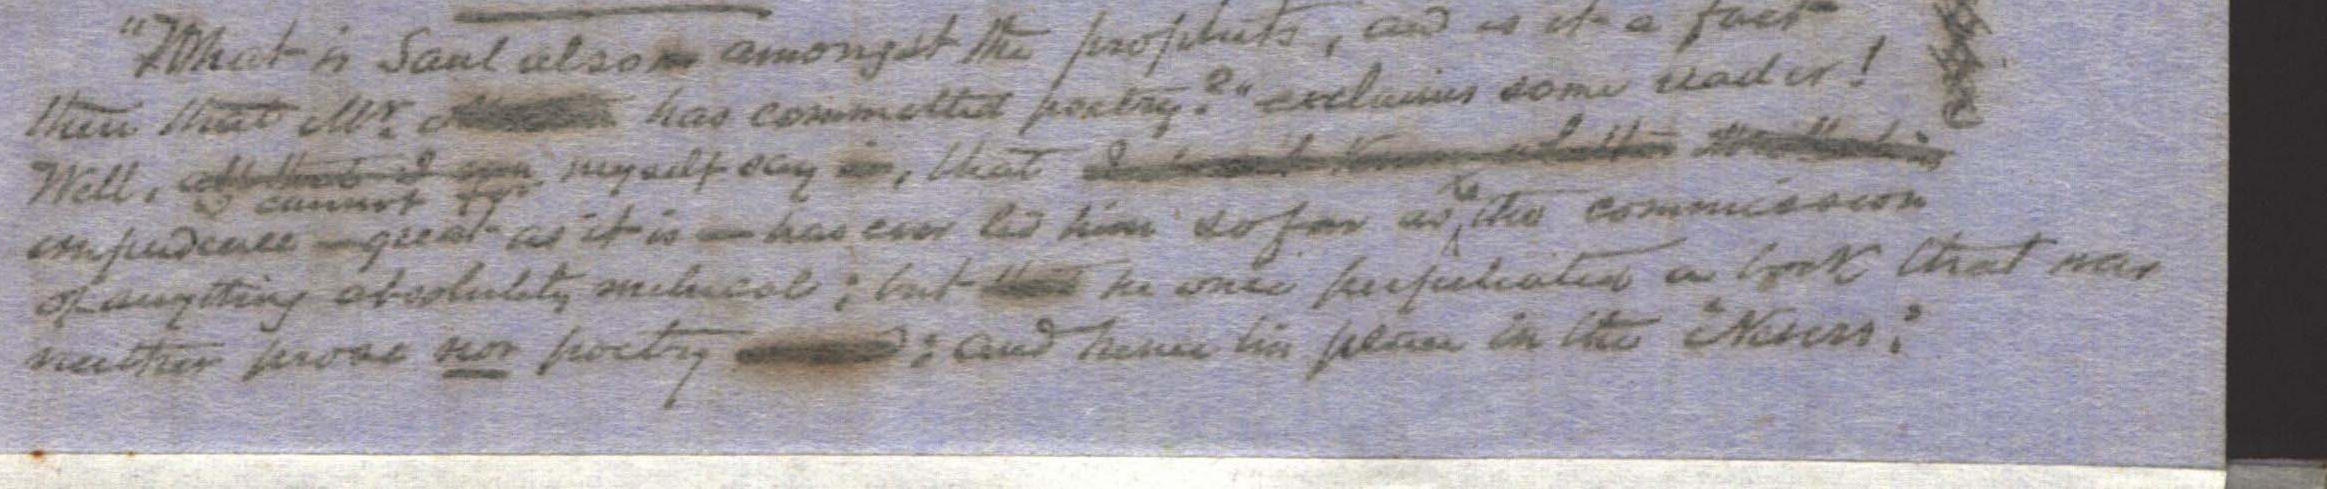 "What is Saul also amongst the prophets, and is it a fact
then that Mr. has committed poetry?" exclaims some reader!
Well, all that I can myself say is, that
I cannot
impudence – great as it is – has ever led him so far as to the commission
of anything absolutely metrical; but he once perpetrated a book that was
neither prose nor poetry ; and hence his place in the "News."